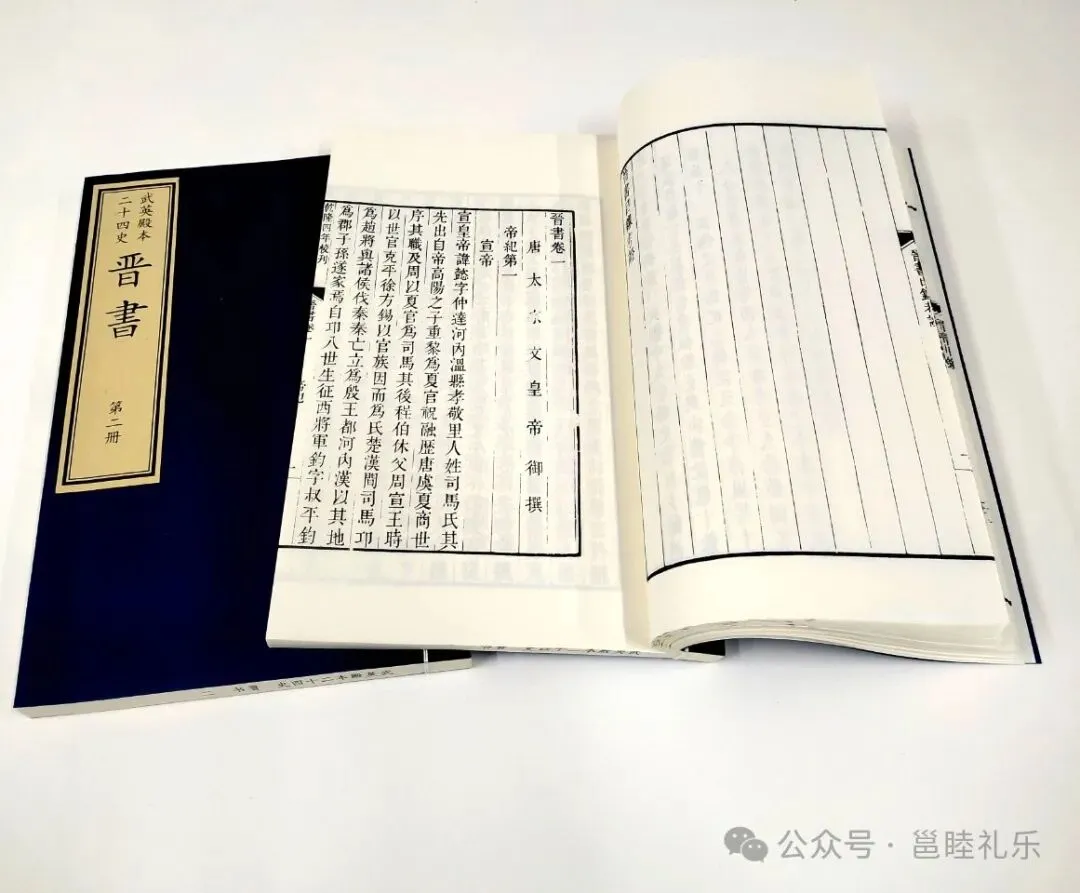 武英殿本
二十四史
晋書
第二册
晉書卷一
唐太宗文皇帝御撰
帝紀第一
宣帝
宣皇帝諱懿字仲達河內溫縣孝敬里人姓司馬氏其
先出自帝高陽之子重黎爲夏官祝融歷唐虞夏商世
序其職及周以夏官爲司馬其後程伯休父周宣王時
以世官克平徐方錫以官族因而爲氏楚漢間司馬卬
爲趙將與諸侯伐秦秦亡立爲殷王都河內漢以其地
爲郡子孫遂家焉自卬八世生征西將軍鈞字叔平鈞
乾隆四年校刊
晉書卷一
一
武英殿本二十四史 晋书 二
公众号·邕睦礼乐